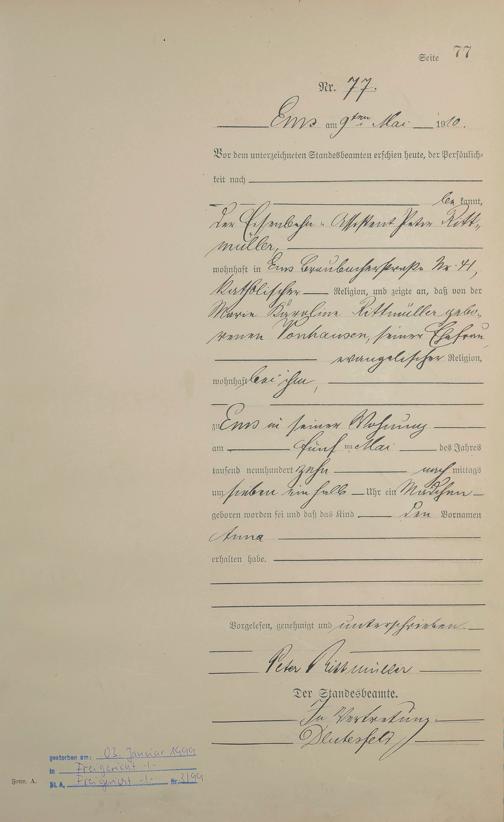 Seite 77
Nr. 77.
Ems am 9ten Mai 1910.
Vor dem unterzeichneten Standesbeamten erschien heute, der Persönlich-
keit nach
be kannt,
der Eisenbahn-Assistent Peter Ritt-
müller,
wohnhaft in Ems Braubacherstraße Nr. 41,
katholischer Religion, und zeigte an, daß von der
Marie Karoline Rittmüller gebo-
renen Vonhausen, seiner Ehefrau,
evangelischer Religion,
wohnhaft bei ihm,
zu Ems in seiner Wohnung
am fünf Mai des Jahres
tausend neunhundert zehn nach mittags
um sieben ein halb Uhr ein Mädchen
geboren worden sei und daß das Kind den Vornamen
Anna
erhalten habe.
Vorgelesen, genehmigt und unterschrieben.
Peter Rittmüller
Der Standesbeamte.
In Vertretung
gestorben am: 03. Januar 1999
in Freigericht -/-
St. A. Freigericht -/- Nr. 2/99
Form. A.